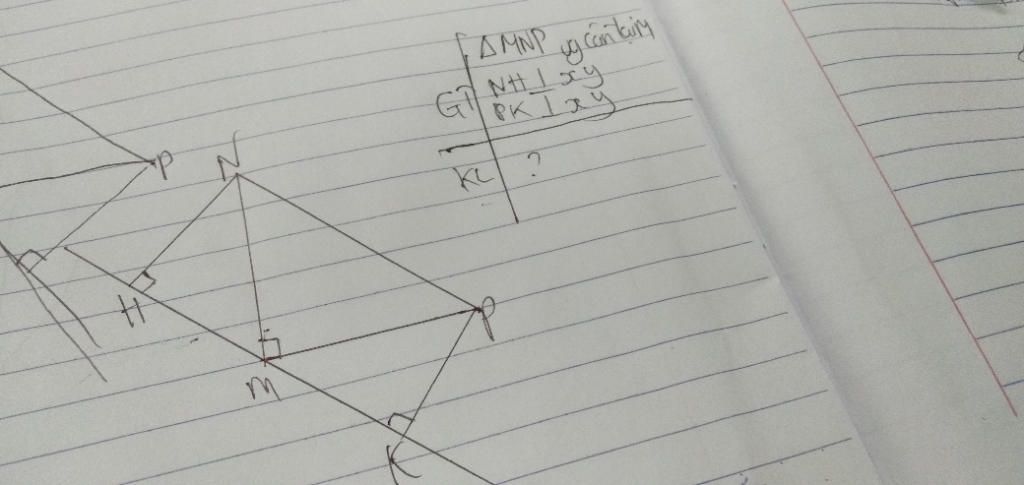 ΔMNP vg cân tại M
GT NH ⊥ xy
PK ⊥ xy
KL ?
P
N
H
P
M
K